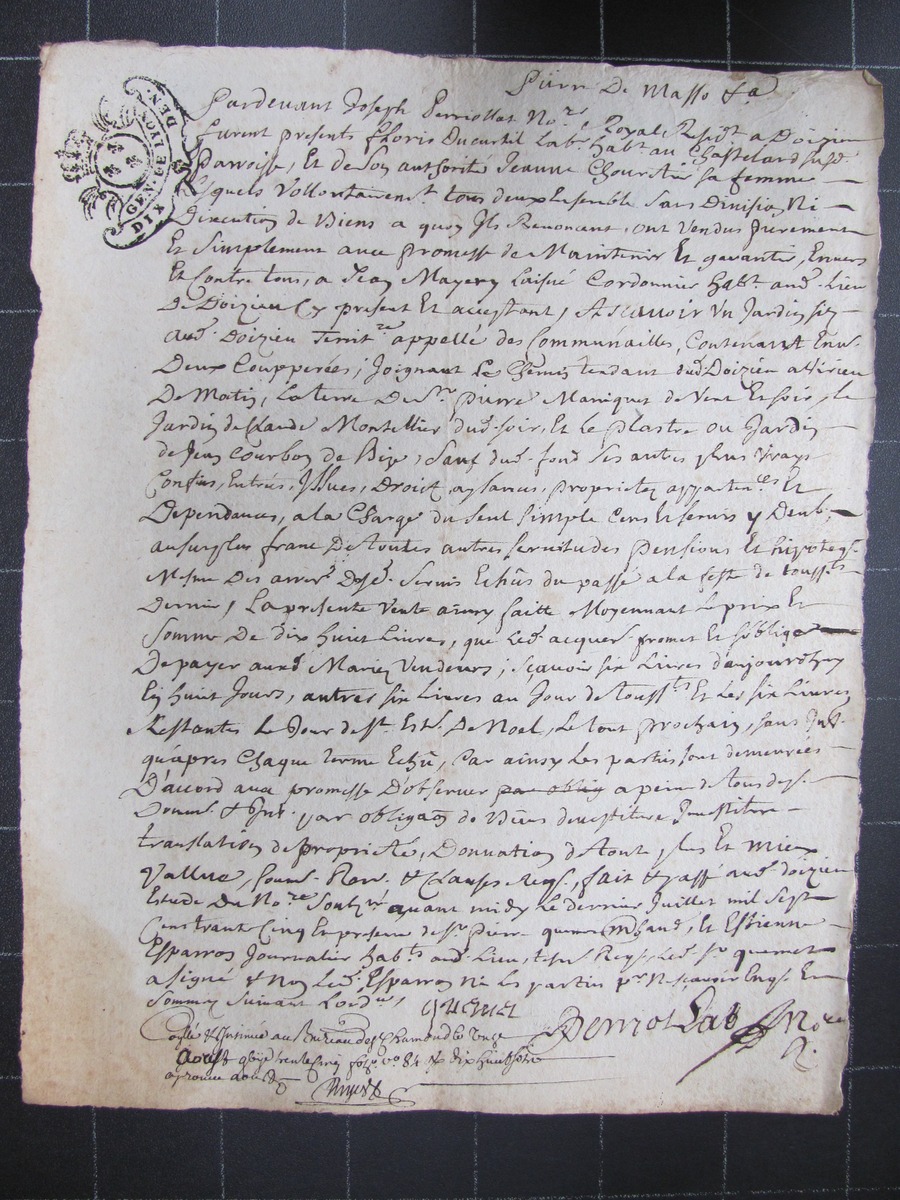 Pierre De Masso
GEN. DE LYON DEN.
DIX
Pardevant Joseph Perriollat No.re Royal Resid.t a Doizieu
furent presents Floris Ducurtil Lab.r hab.t au Chastelard susd.
Parroisse, Et de son authorité Jeanne sa femme
Lesquels Vollontairem.t tous deux Ensemble Sans Division Ni
Discution de Biens a quoy Ils Renoncent, ont Vendus purement
Et Simplement avec promesse de Maintenir Et garantir, Envers
Et Contre tous, a Jean Mayery Laisné Cordonnier hab.t aud. Lieu
De Doizieu Cy present Et acceptant, Ascavoir Un Jardin size
aud. Doizieu Territ.re appellé des Communailles, Contenant Env.
Deux Coupperées; Joignant Le Chemin tendant dud. Doizieu a
De Matin, La terre De S.r Pierre Maniquet de Vent Et soir, le
Jardin de Claude Montellier dud. soir, Et Le plastre ou Jardin
de Jean Courbon de Bize, Sauf dud. fond Ses autres plus Vrays
Confins, Entrées, Issues, Droict, aysances, proprietez apparten.ces Et
Dependances, a La Charge du Seul Simple Cens Et servis y Deub,
au surplus franc De toutes autres servitudes pensions Et hipoteq.
Mesme Des arrer. Desd. Servis Echûs du passé a la feste de touss.ts
Dernier, La presente Vente ainsy faitte Moyennant Le prix Et
Somme De dix huit Livres, que Led. acquer. promet Et s'oblige
De payer auxd. Mariez Vendeurs; sçavoir six Livres d'aujourdhuy
En huit Jours, autres six Livres au Jour de touss.ts Et Les six Livres
Restantes Le Jour de f.te De Noel, Le tout prochain, sans
qu'apres Chaque terme Echû, Car ainsy Les parties sont demeurées
D'accord avec promesse D'observer par oblig a peine de tous desp.
Domm. par obligaõn de Biens devestiture Investiture
translation de proprieté, Donnation de tout plus Et mieux
Vallue, soum. Ren. & Clauses Req., fait & passé aud. doizieu
Estude Du No.re Soubz.né avant midy Le dernier Juillet mil Sept
Cens trante Cinq En presence de S.r Pierre quemet March.and, Et Estienne
Esparron Journalier hab.ts aud. Lieu, tesm. Req., Led. S.r quemet
a signé & Non Led. Esparron Ni Les parties p.r Ne sçavoir Enq. Et
Sommez Suivant Lord.ce
quemet
Perriollat No.re
Collé & Insinué au Bureau de S.t Chamond le onze
Aoust trente cinq fo.o v.o 84